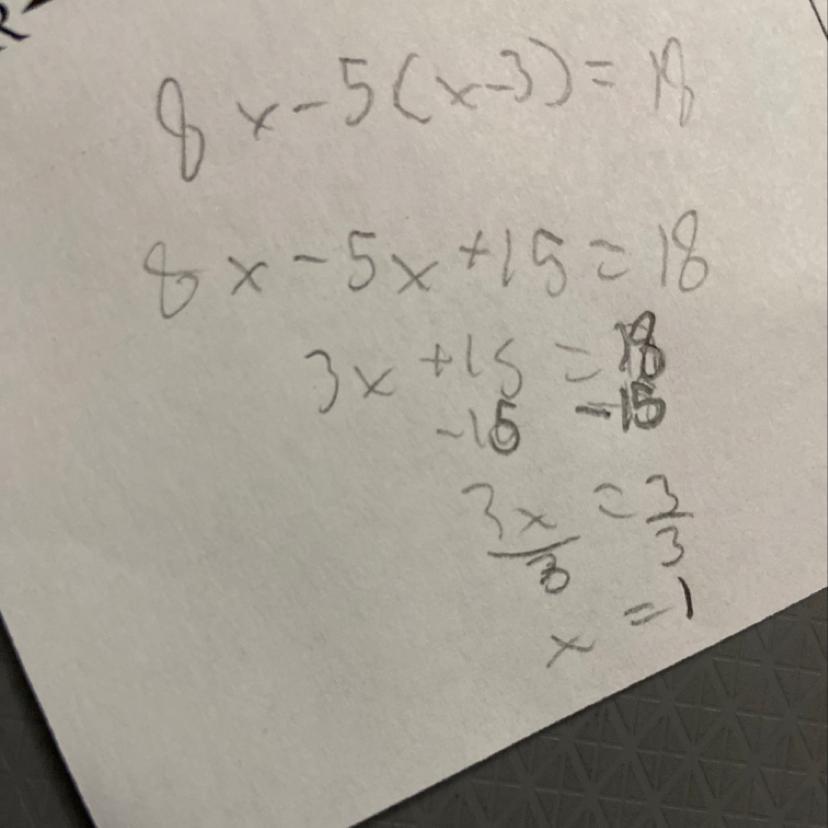 R
8x-5(x-3)=18
8x-5x+15=18
3x+15=18
-15 -15
3x/3=3/3
x=1